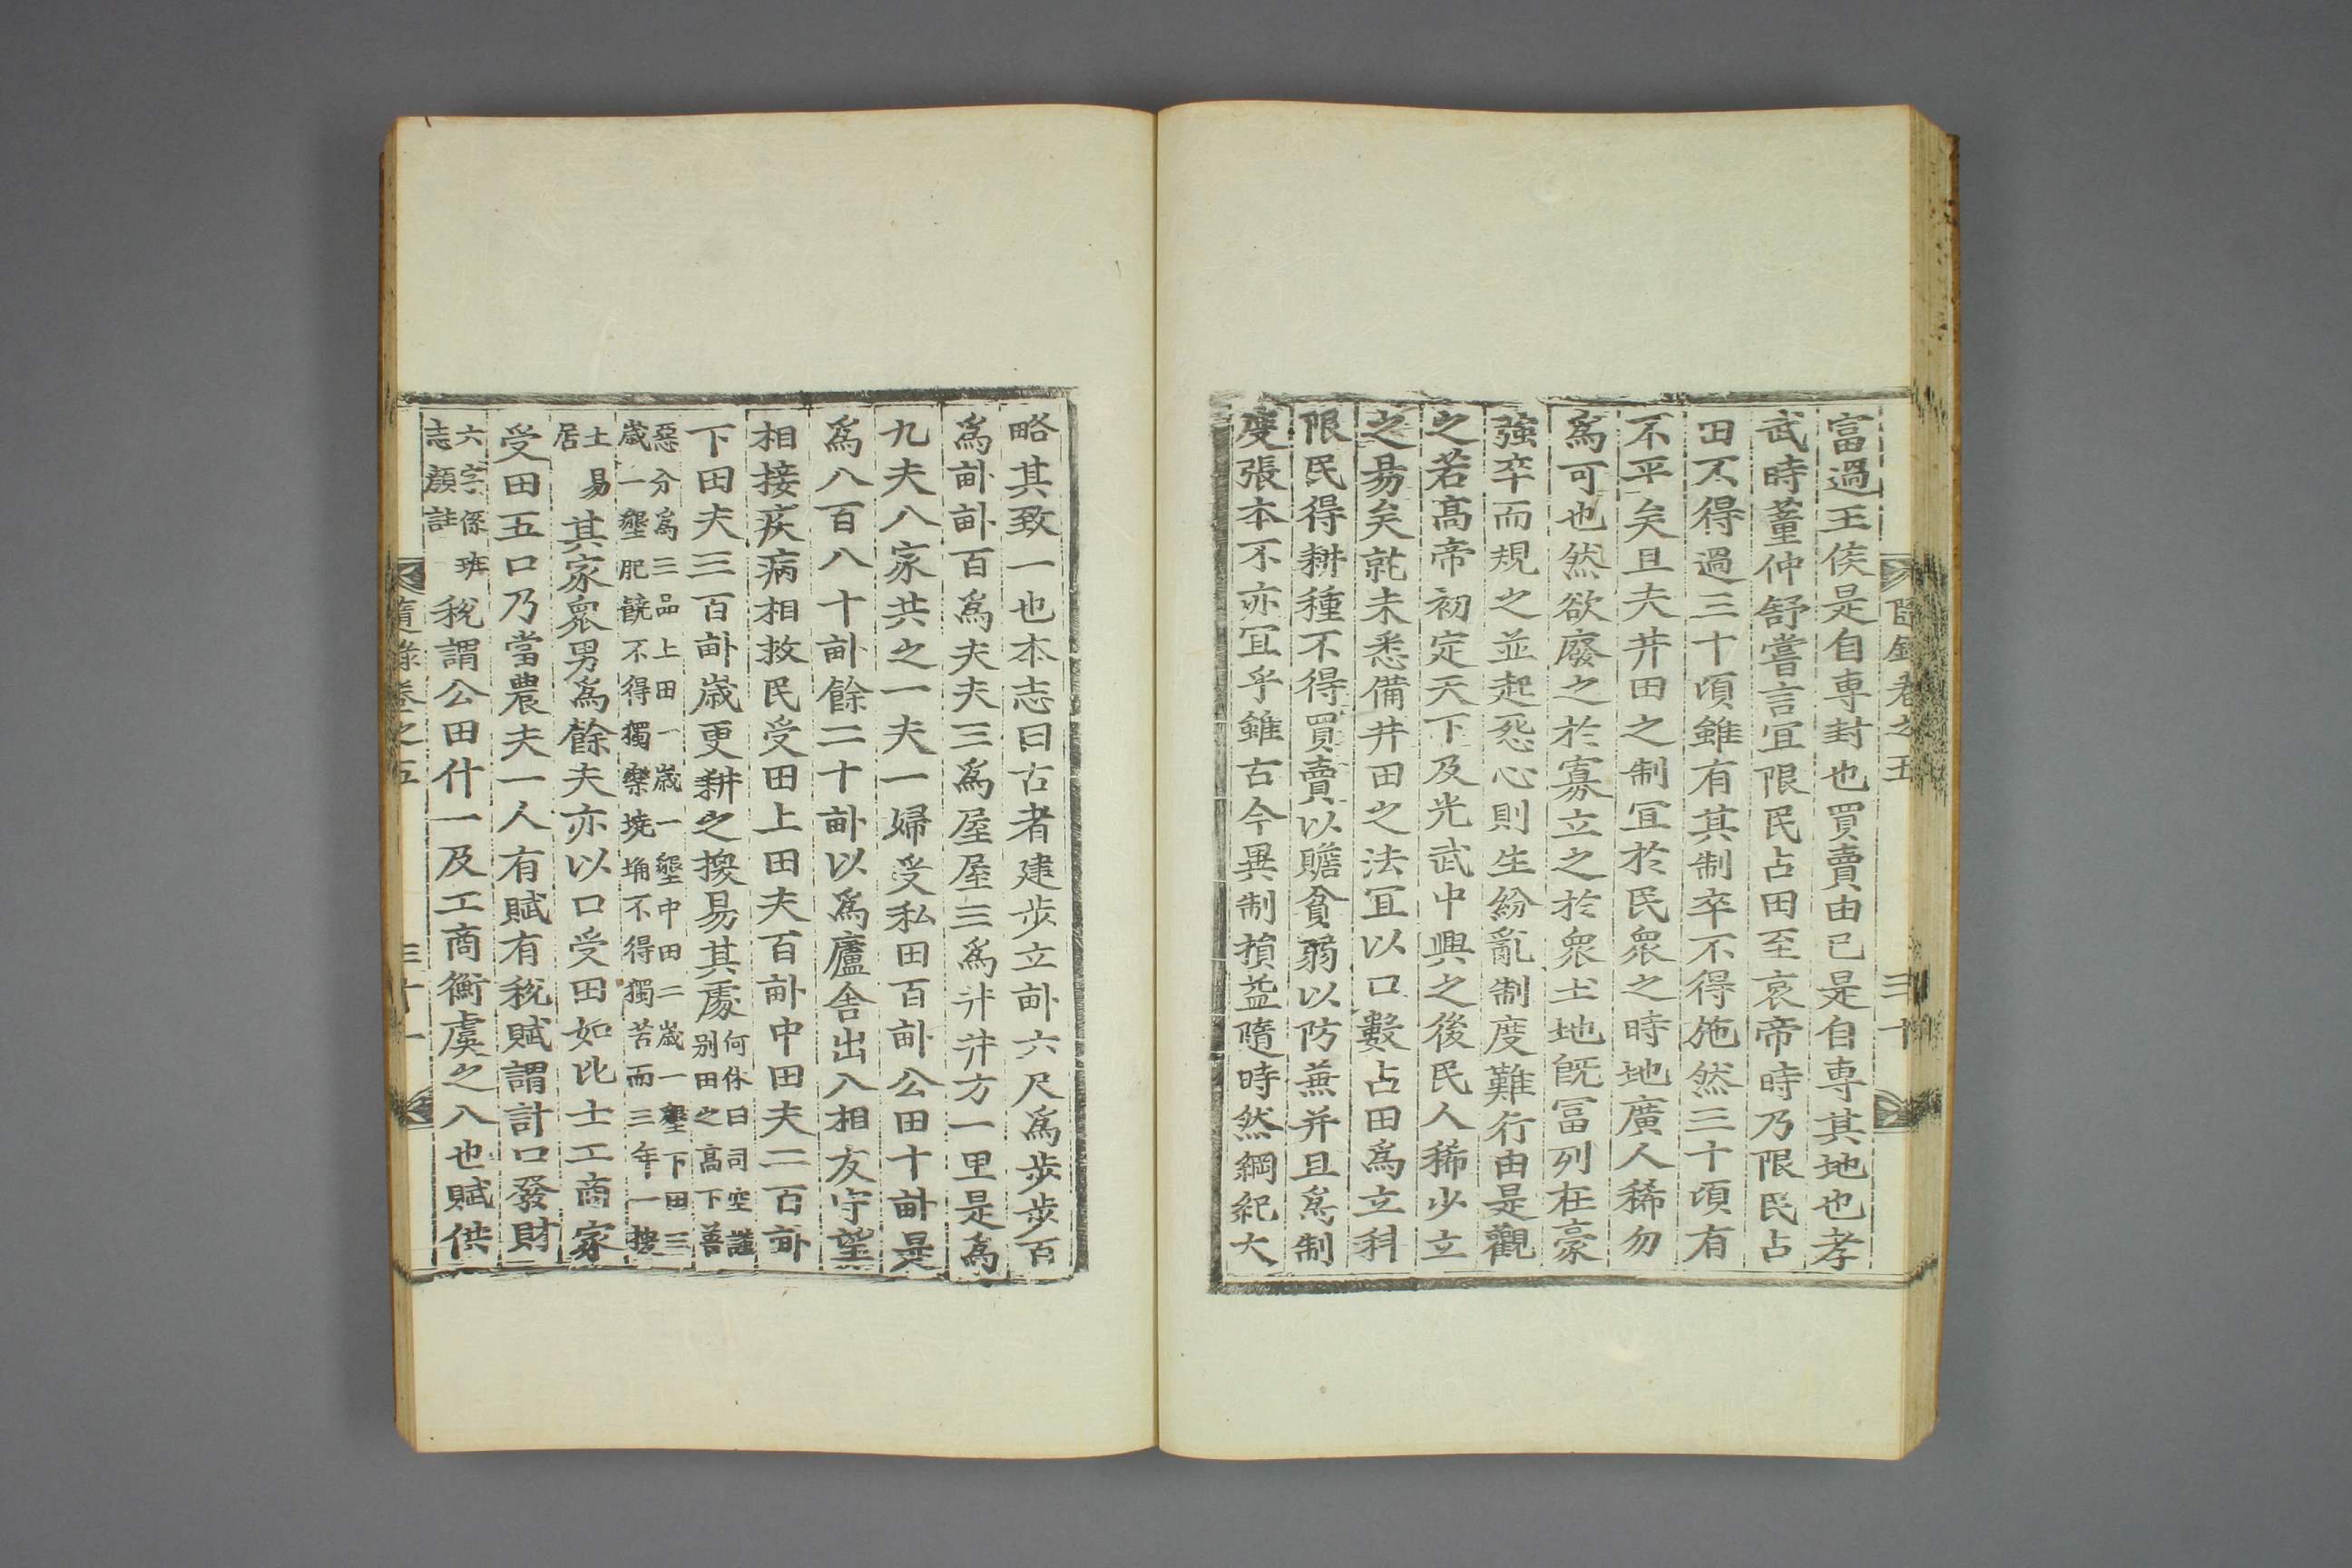 隨錄卷之五 三十
富過王侯是自專封也買賣由已是自專其地也孝
武時董仲舒嘗言宜限民占田至哀帝時乃限民占
田不得過三十頃雖有其制卒不得施然三十頃有
不平矣且夫井田之制宜於民衆之時地廣人稀勿
爲可也然欲廢之於寡立之於衆土地旣冨列在豪
強卒而規之並起怨心則生紛亂制度難行由是觀
之若高帝初定天下及光武中興之後民人稀少立
之易矣就未悉備井田之法宜以口數占田爲立科
限民得耕種不得買賣以贍貧弱以防蒹并且爲制
度張本不亦宜乎雖古今異制損益隨時然綱紀大
略其致一也本志曰古者建步立畝六尺爲步步百
爲畝畝百爲夫夫三爲屋屋三爲井井方一里是爲
九夫八家共之一夫一婦受私田百畝公田十畝是
爲八百八十畝餘二十畝以爲廬舍出入相友守望
相接疾病相救民受田上田夫百畝中田夫二百畝
下田夫三百畝歲更耕之換易其處
何休曰司空謹
别田之高下善
惡分爲三品上田一歲一墾中田二歲一墾下田三
歲一墾肥饒不得獨樂墝埆不得獨苦而三年一換
土易
居
其家衆男爲餘夫亦以口受田如此士工商家
受田五口乃當農夫一人有賦有稅賦謂計口發財
六字係班
志顔註
稅謂公田什一及工商衡虞之入也賦供
隨錄卷之五 三十一